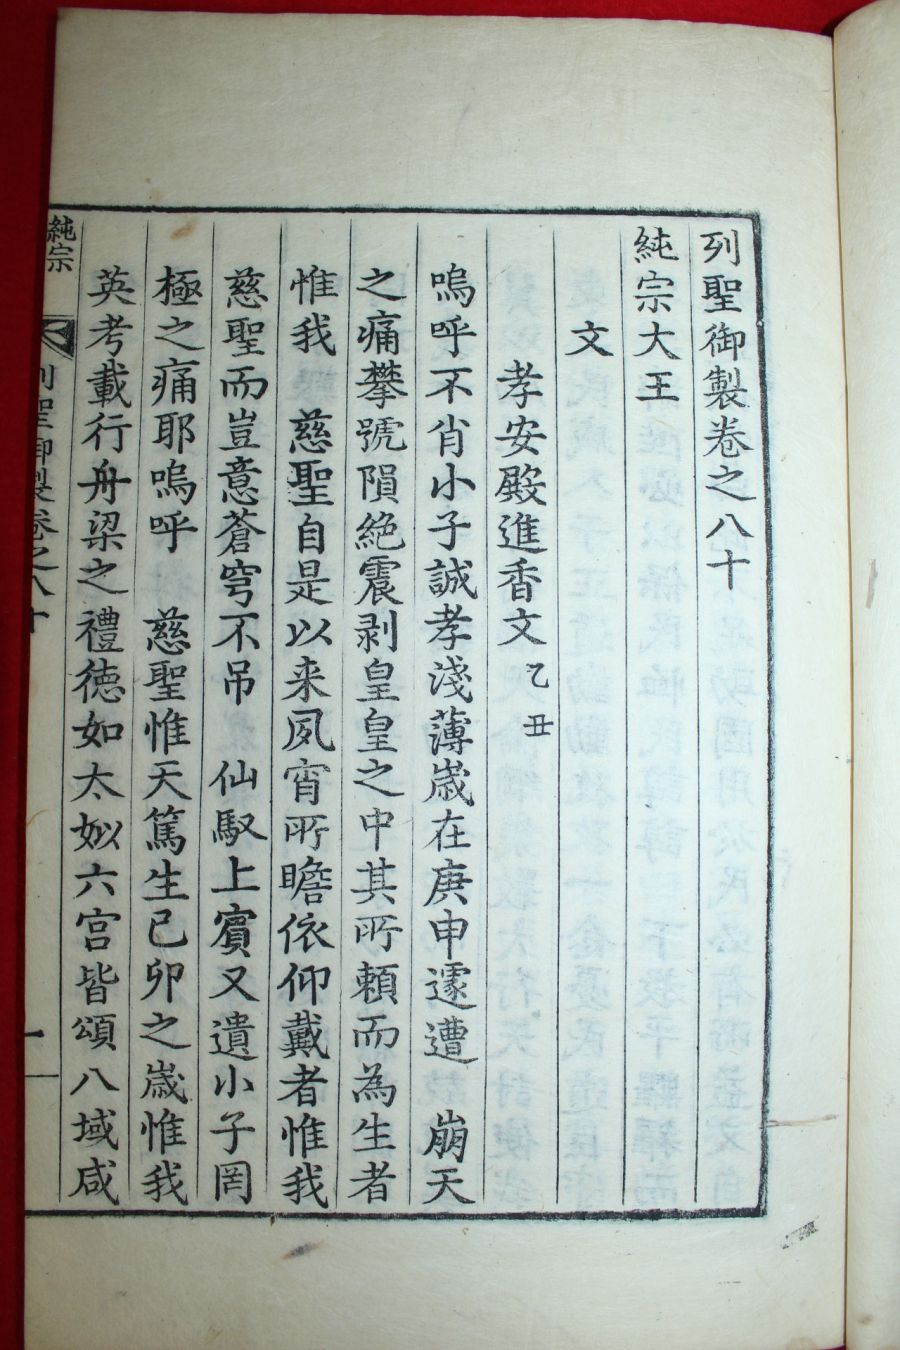 列聖御製卷之八十
純宗大王
文
孝安殿進香文 乙丑
嗚呼不肖小子誠孝淺薄歲在庚申遽遭 崩天
之痛攀號隕絶震剥皇皇之中其所賴而為生者
惟我 慈聖自是以来夙宵所瞻依仰戴者惟我
慈聖而豈意蒼穹不吊 仙馭上賓又遺小子罔
極之痛耶嗚呼 慈聖惟天篤生己卯之歲惟我
英考載行舟梁之禮德如太姒六宮皆頌八域咸
純宗 列聖御製卷之八十 一